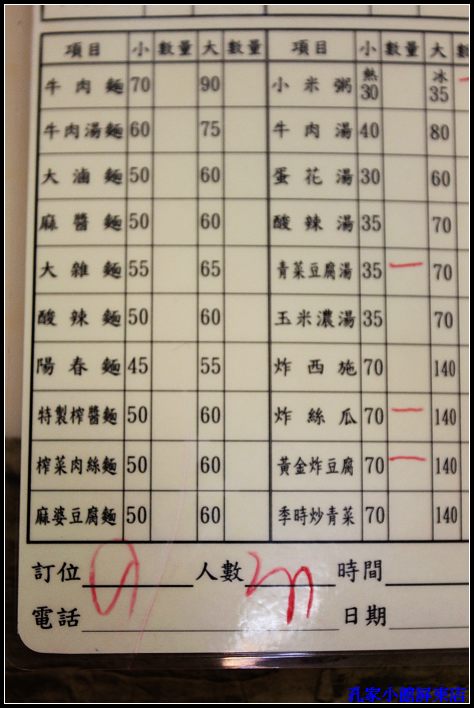 項目 小 數量 大 數量 項目 小 數量 大
牛肉麵 70 90 小米粥 熱30 冰35
牛肉湯麵 60 75 牛肉湯 40 80
大滷麵 50 60 蛋花湯 30 60
麻醬麵 50 60 酸辣湯 35 70
大雜麵 55 65 青菜豆腐湯 35 70
酸辣麵 50 60 玉米濃湯 35 70
陽春麵 45 55 炸西施 70 140
特製榨醬麵 50 60 炸絲瓜 70 140
榨菜肉絲麵 50 60 黃金炸豆腐 70 140
麻婆豆腐麵 50 60 季時炒青菜 70 140
訂位 人數 時間
電話 日期
孔家小館屏東店